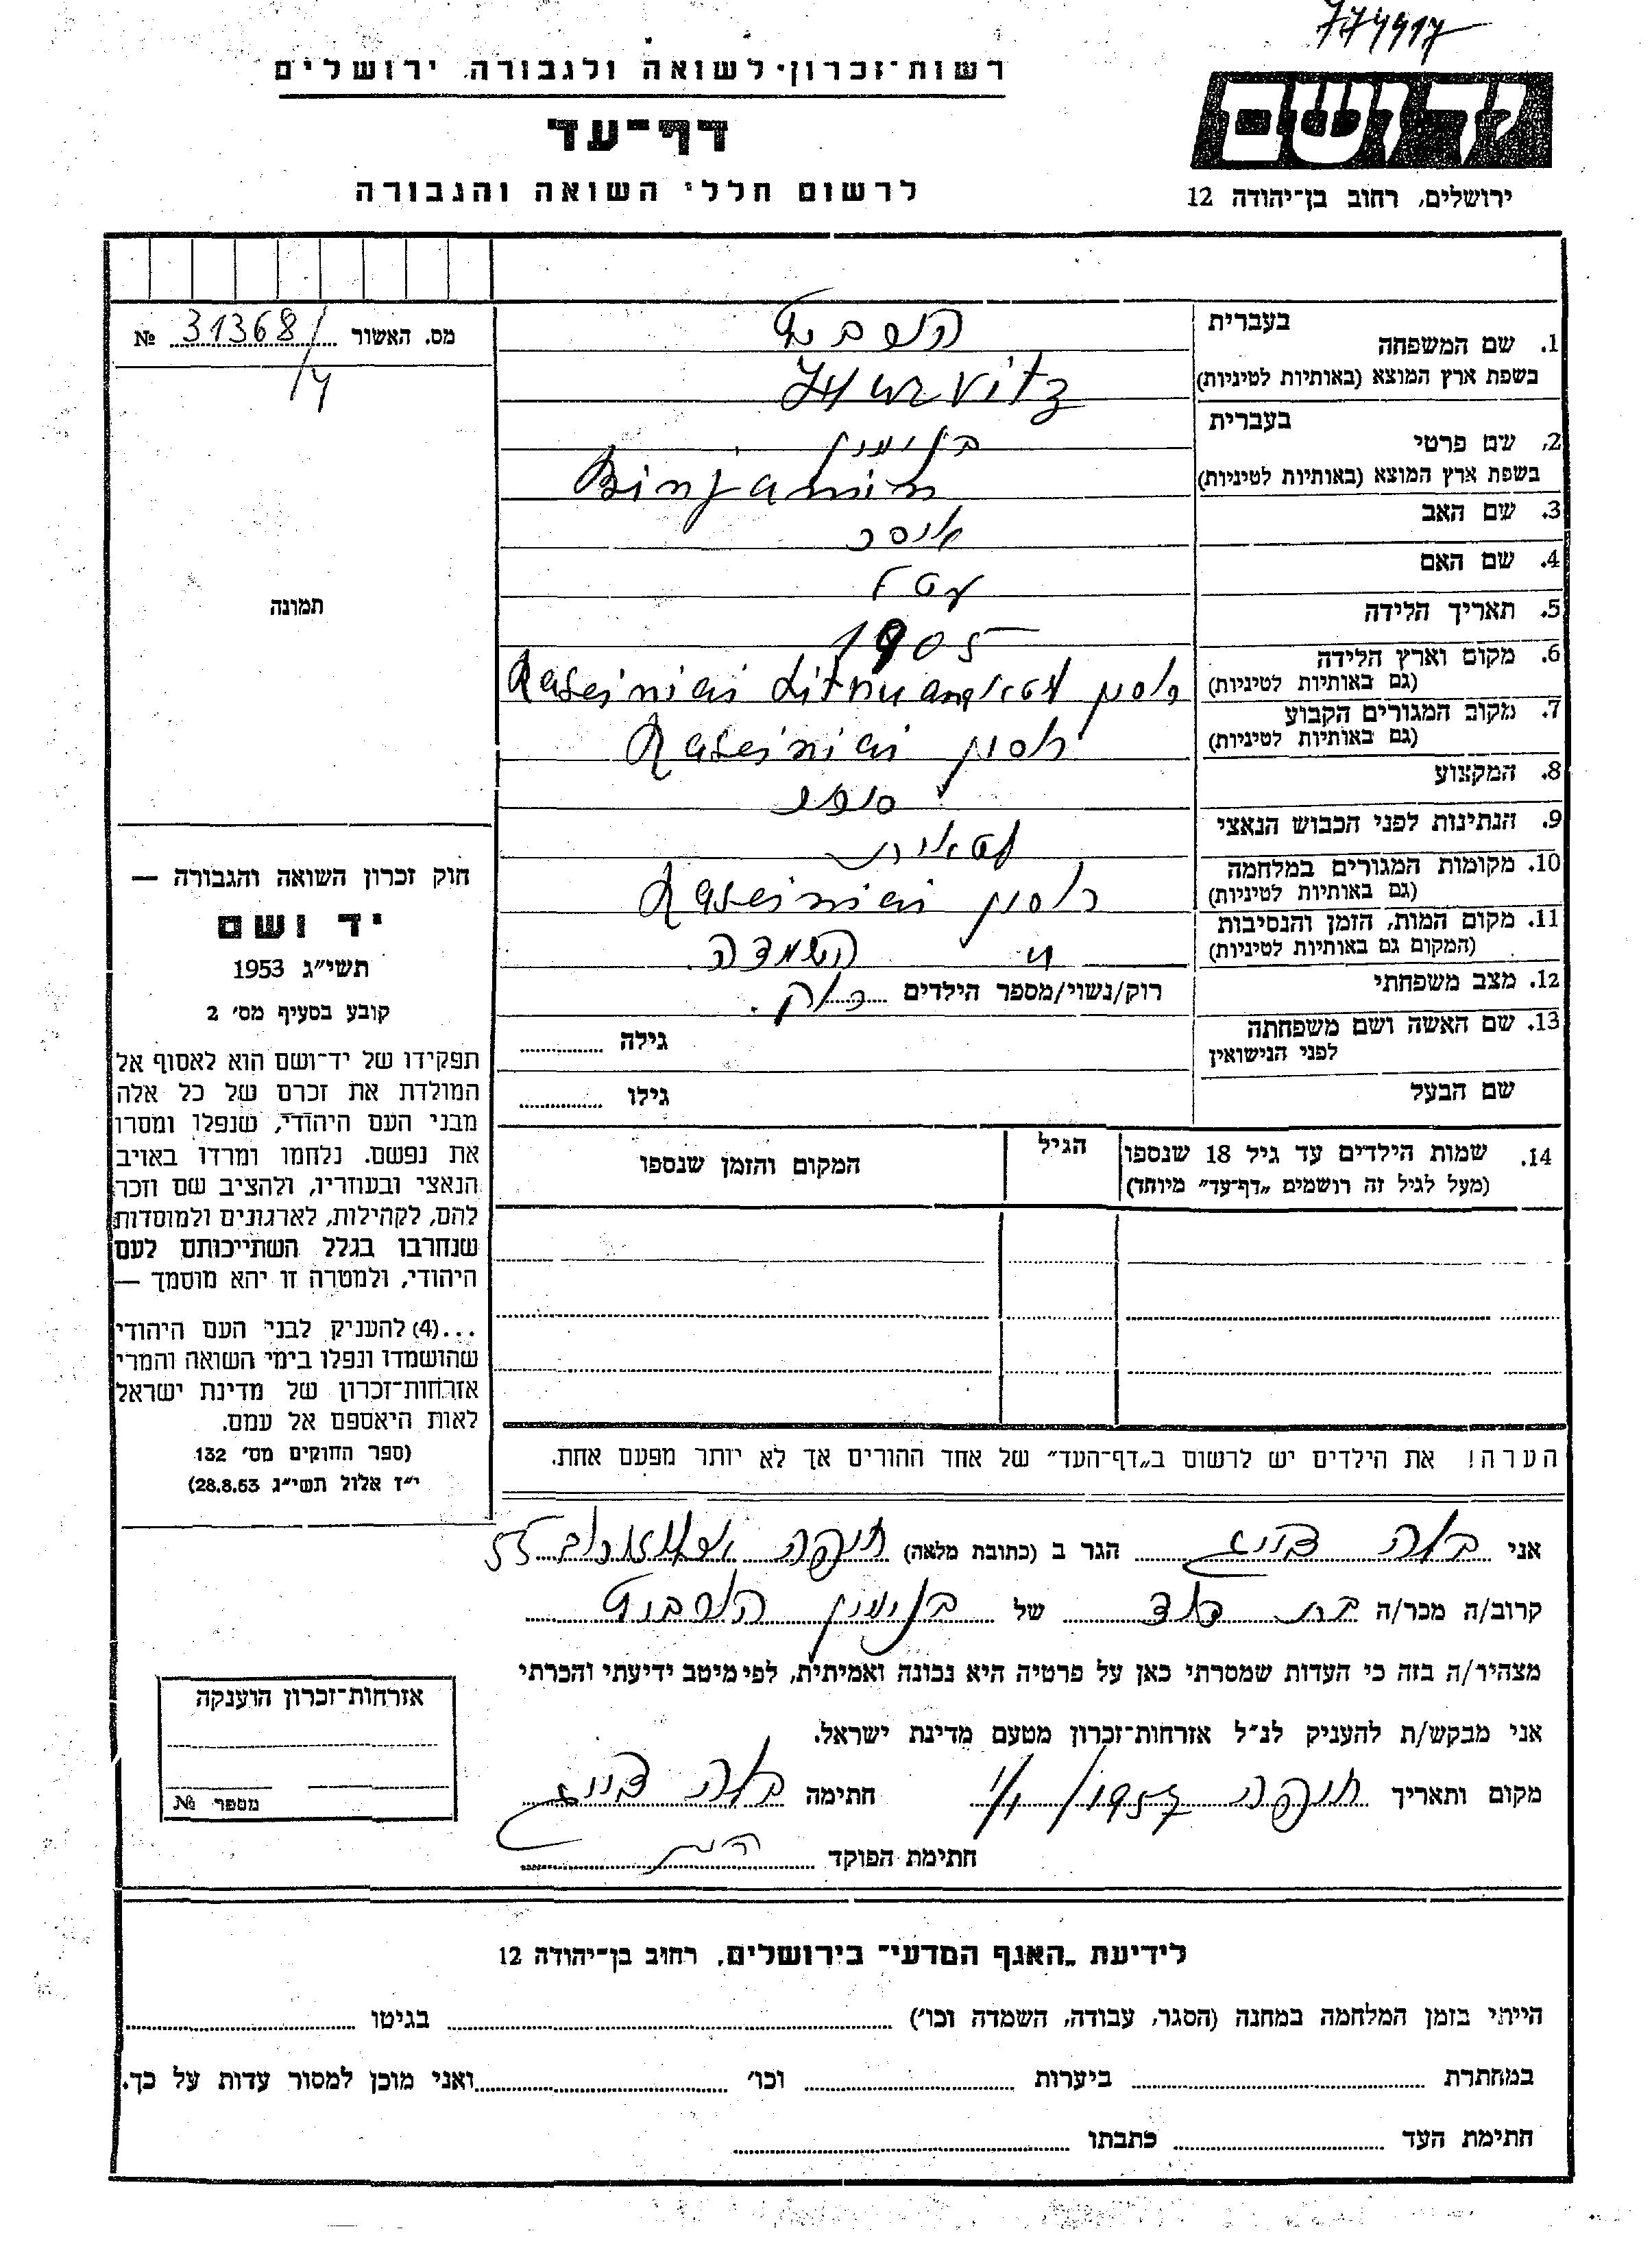 רשות־זכרון לשואה ולגבורה ירושלים
דף־עד
לרשום חללי השואה והגבורה
יד ושם
ירושלים, רחוב בן־יהודה 12
מס. האשור 31368 №
תמונה
1. שם המשפחה בעברית הורביץ
בשפת ארץ המוצא (באותיות לטיניות) Hurvitz
2. שם פרטי בעברית בנימין
בשפת ארץ המוצא (באותיות לטיניות) Binjamin
3. שם האב איסר
4. שם האם
5. תאריך הלידה 1905
6. מקום וארץ הלידה
(גם באותיות לטיניות) רסין ליטא Raseiniai
7. מקום המגורים הקבוע
(גם באותיות לטיניות) רסין Raseiniai
8. המקצוע
9. הנתינות לפני הכבוש הנאצי ליטאית
10. מקומות המגורים במלחמה
(גם באותיות לטיניות) רסין Raseiniai
11. מקום המות, הזמן והנסיבות
(המקום גם באותיות לטיניות) השמדה
12. מצב משפחתי רוק/נשוי/מספר הילדים רוק.
13. שם האשה ושם משפחתה
לפני הנישואין גילה
שם הבעל גילו
14. שמות הילדים עד גיל 18 שנספו הגיל המקום והזמן שנספו
(מעל לגיל זה רושמים „דף־עד" מיוחד)
חוק זכרון השואה והגבורה —
יד ושם
תשי"ג 1953
קובע בסעיף מס' 2
תפקידו של יד־ושם הוא לאסוף אל
המולדת את זכרם של כל אלה
מבני העם היהודי, שנפלו ומסרו
את נפשם. נלחמו ומרדו באויב
הנאצי ובעוזריו, ולהציב שם וזכר
להם, לקהילות, לארגונים ולמוסדות
שנחרבו בגלל השתייכותם לעם
היהודי, ולמטרה זו יהא מוסמך —
...(4) להעניק לבני העם היהודי
שהושמדו ונפלו בימי השואה והמרי
אזרחות־זכרון של מדינת ישראל
לאות היאספם אל עמם.
(ספר החוקים מס' 132
י"ז אלול תשי"ג 28.8.53)
הערה! את הילדים יש לרשום ב„דף־העד" של אחד ההורים אך לא יותר מפעם אחת.
אני הגר ב (כתובת מלאה) חיפה
קרוב/ה מכר/ה בת דוד של בנימין הורביץ
מצהיר/ה בזה כי העדות שמסרתי כאן על פרטיה היא נכונה ואמיתית, לפי מיטב ידיעתי והכרתי
אני מבקש/ת להעניק לנ"ל אזרחות־זכרון מטעם מדינת ישראל.
מקום ותאריך חיפה חתימה
חתימת הפוקד
אזרחות־זכרון הוענקה
מספר №
לידיעת „האגף המדעי" בירושלים, רחוב בן־יהודה 12
הייתי בזמן המלחמה במחנה (הסגר, עבודה, השמדה וכו') בגיטו
במחתרת ביערות וכו' ואני מוכן למסור עדות על כך.
חתימת העד כתבתו